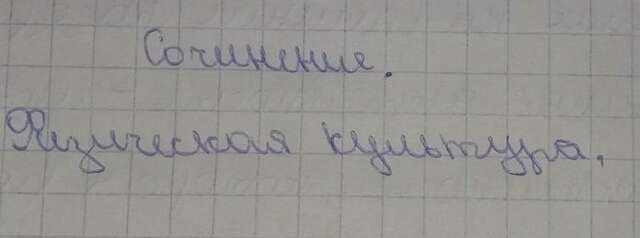 Сочинение.
Физическая культура.